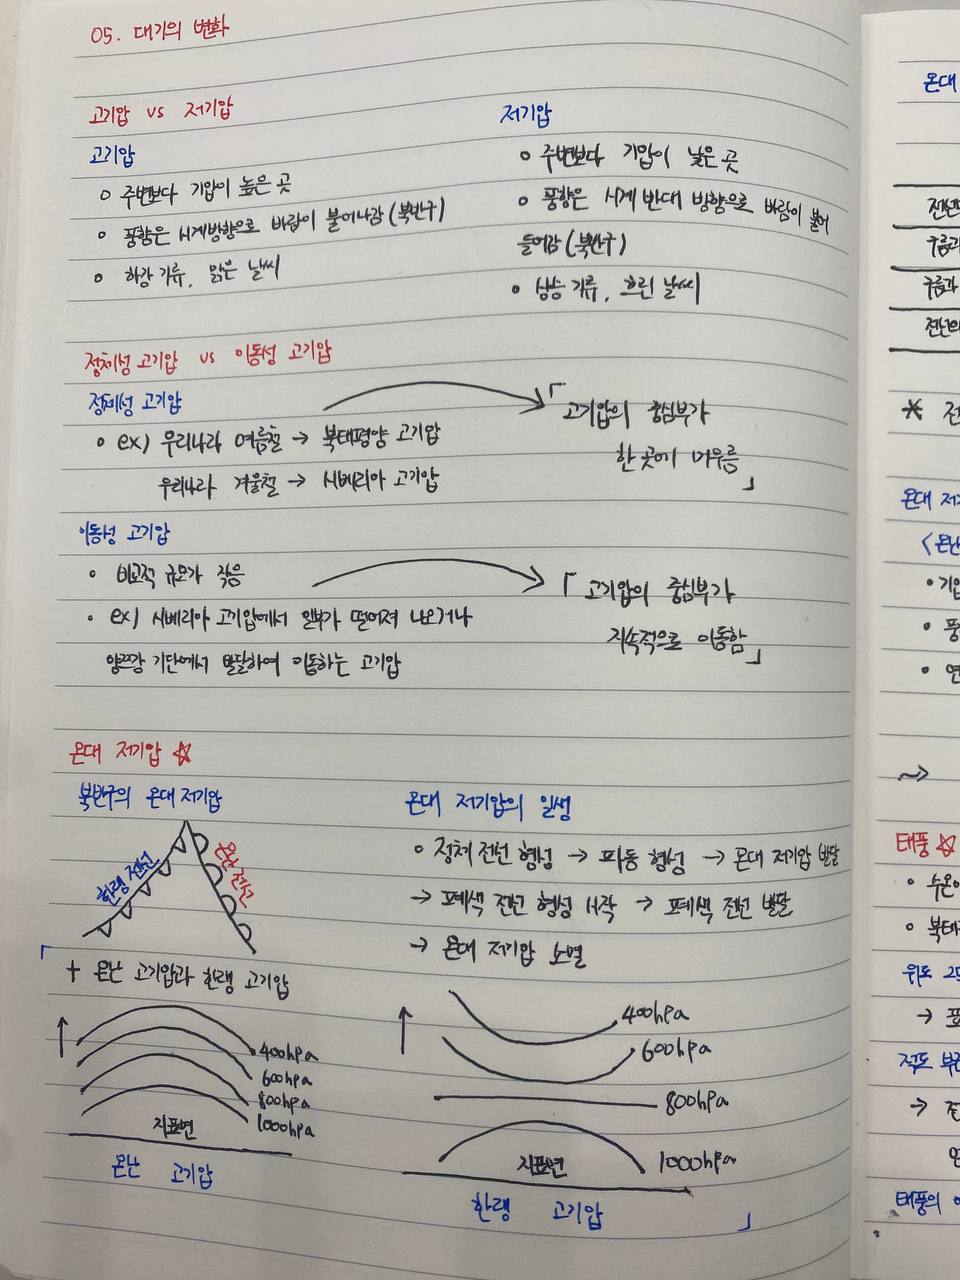 05. 대기의 변화
고기압 vs 저기압
고기압
○ 주변보다 기압이 높은 곳
○ 풍향은 시계방향으로 바람이 불어나감 (북반구)
○ 하강 기류, 맑은 날씨
저기압
○ 주변보다 기압이 낮은 곳
○ 풍향은 시계 반대 방향으로 바람이 불어
들어감 (북반구)
○ 상승 기류, 흐린 날씨
정체성 고기압 vs 이동성 고기압
정체성 고기압
○ ex) 우리나라 여름철 → 북태평양 고기압
우리나라 겨울철 → 시베리아 고기압
「고기압의 중심부가
한 곳에 머무름」
이동성 고기압
○ 비교적 규모가 작음
○ ex) 시베리아 고기압에서 일부가 떨어져 나오거나
양쯔강 기단에서 발달하여 이동하는 고기압
「고기압의 중심부가
지속적으로 이동함」
온대 저기압 ☆
북반구의 온대 저기압
한랭 전선
온난 전선
온대 저기압의 일생
○ 정체 전선 형성 → 파동 형성 → 온대 저기압 발달
→ 폐색 전선 형성 시작 → 폐색 전선 발달
→ 온대 저기압 소멸
「+ 온난 고기압과 한랭 고기압
↑
400hPa
600hPa
800hPa
1000hPa
지표면
온난 고기압
↑
400hPa
600hPa
800hPa
1000hPa
지표면
한랭 고기압 」
온대
구름과
구름과
전선의
* 전
온대 저기
<온난
• 기압
• 풍
• 연
⇝
태풍 ☆
• 수온이
• 북태
위도
→ 표
적도 부근
→ 전
태풍의